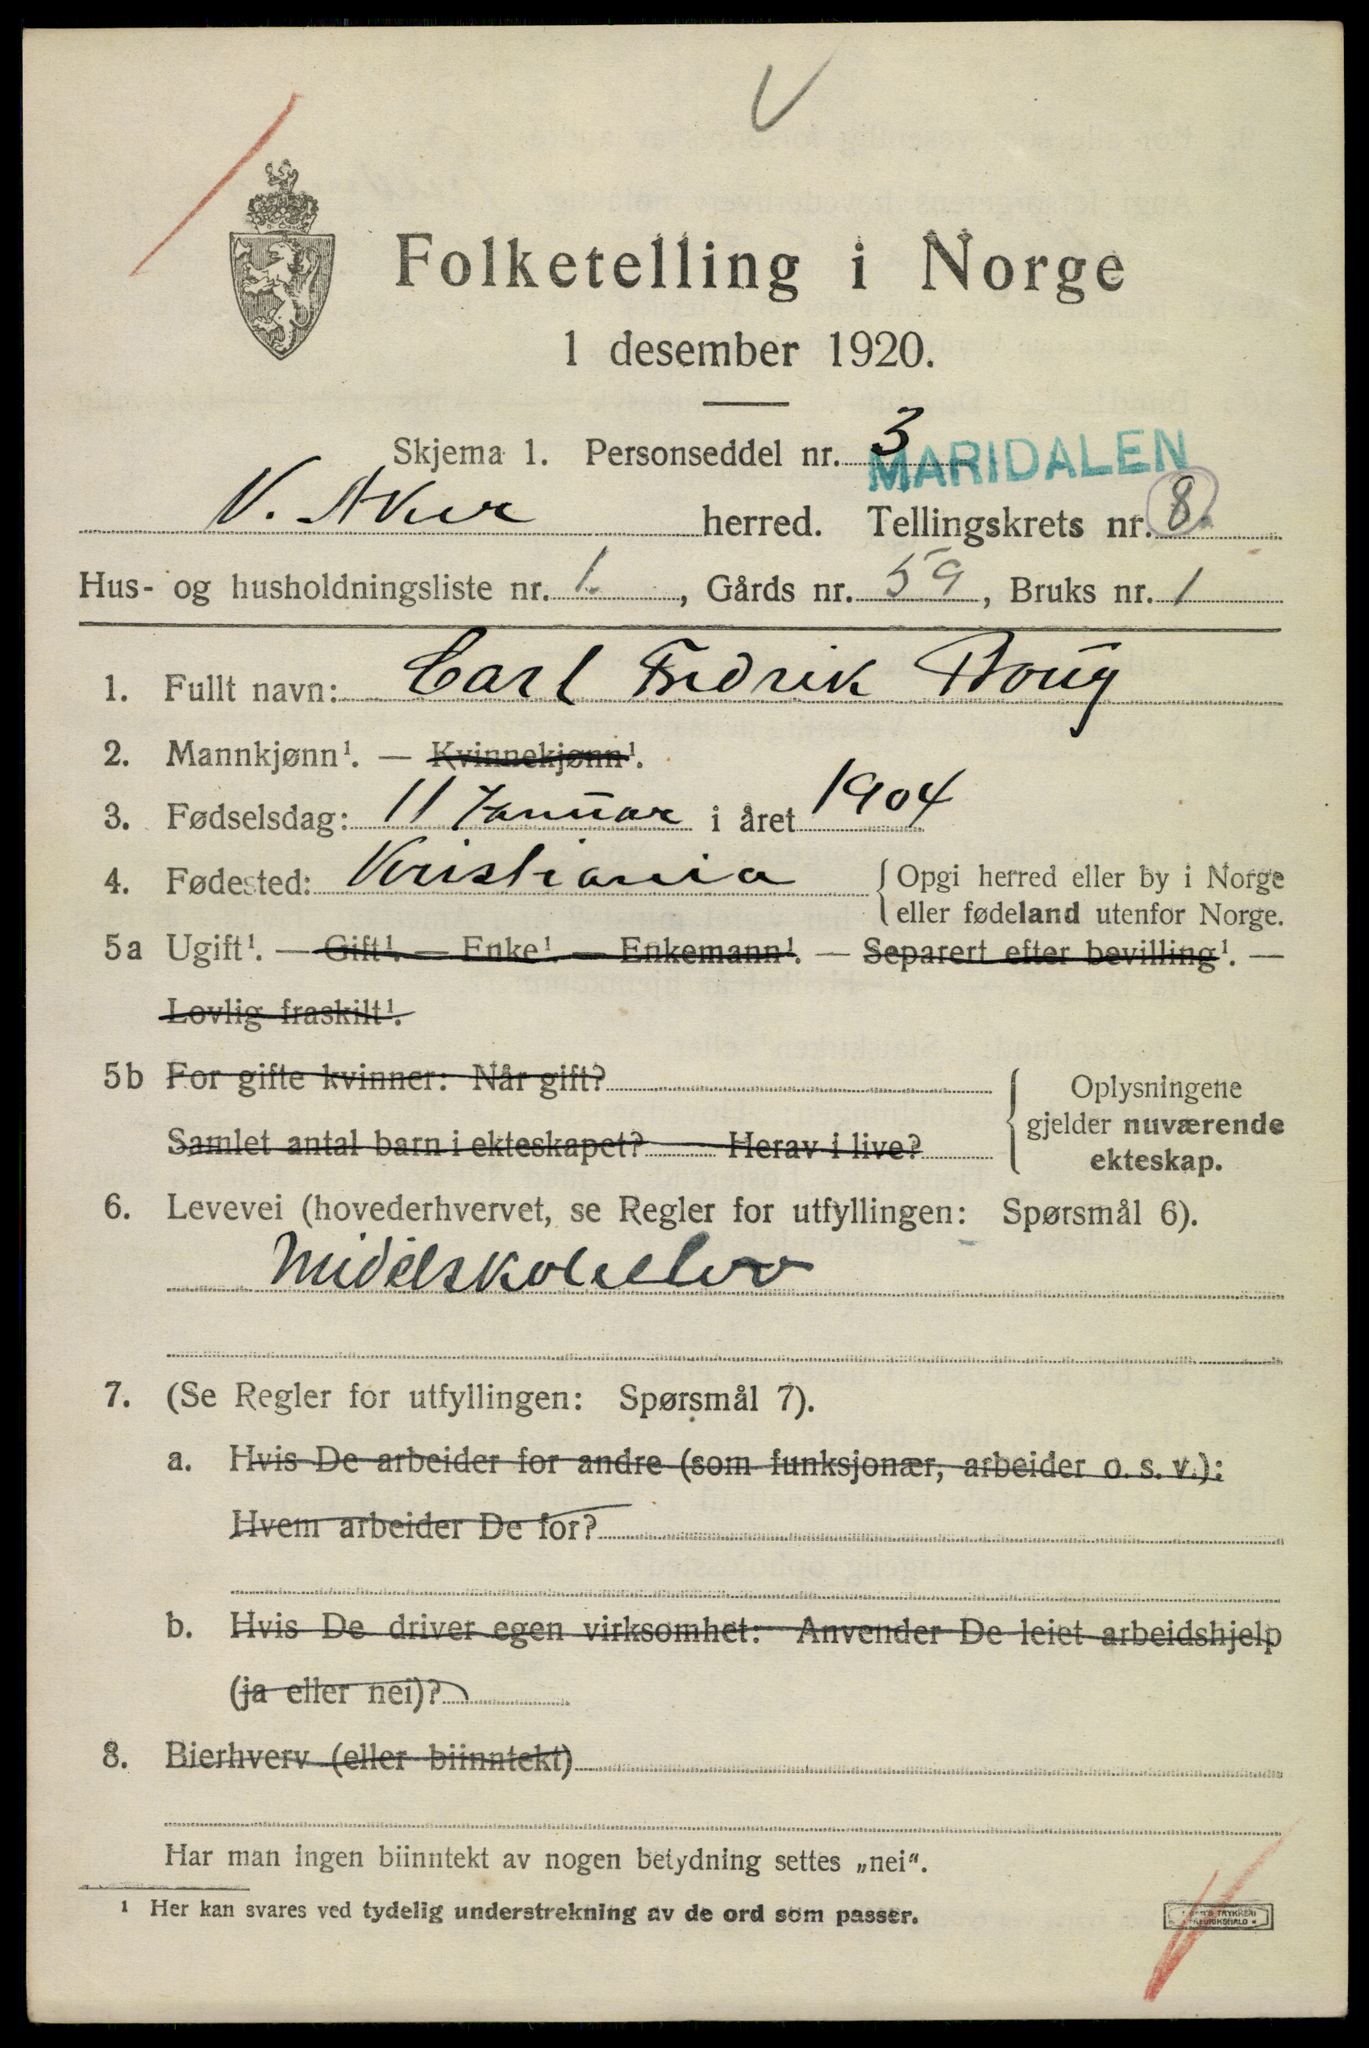 Folketelling i Norge
1 desember 1920.
Skjema 1. Personseddel nr. 3
MARIDALEN
V. Aker herred. Tellingskrets nr. 8.
Hus- og husholdningsliste nr. 1. , Gårds nr. 59 , Bruks nr. 1
1. Fullt navn: Carl Fredrik
2. Mannkjønn¹. — Kvinnekjønn¹.
3. Fødselsdag: 11 Januar i året 1904
4. Fødested: Kristiania { Opgi herred eller by i Norge
eller fødeland utenfor Norge.
5a Ugift¹. — Gift¹. — Enke¹. — Enkemann¹. — Separert efter bevilling¹. —
Lovlig fraskilt¹.
5b For gifte kvinner: Når gift?
Samlet antal barn i ekteskapet? Herav i live?
{ Oplysningene
gjelder nuværende
ekteskap.
6. Levevei (hovederhvervet, se Regler for utfyllingen: Spørsmål 6).
Midelskoleelev
7. (Se Regler for utfyllingen: Spørsmål 7).
a. Hvis De arbeider for andre (som funksjonær, arbeider o. s. v.):
Hvem arbeider De for?
b. Hvis De driver egen virksomhet: Anvender De leiet arbeidshjelp
(ja eller nei)?
8. Bierhverv (eller biinntekt)
Har man ingen biinntekt av nogen betydning settes „nei“.
¹ Her kan svares ved tydelig understrekning av de ord som passer.